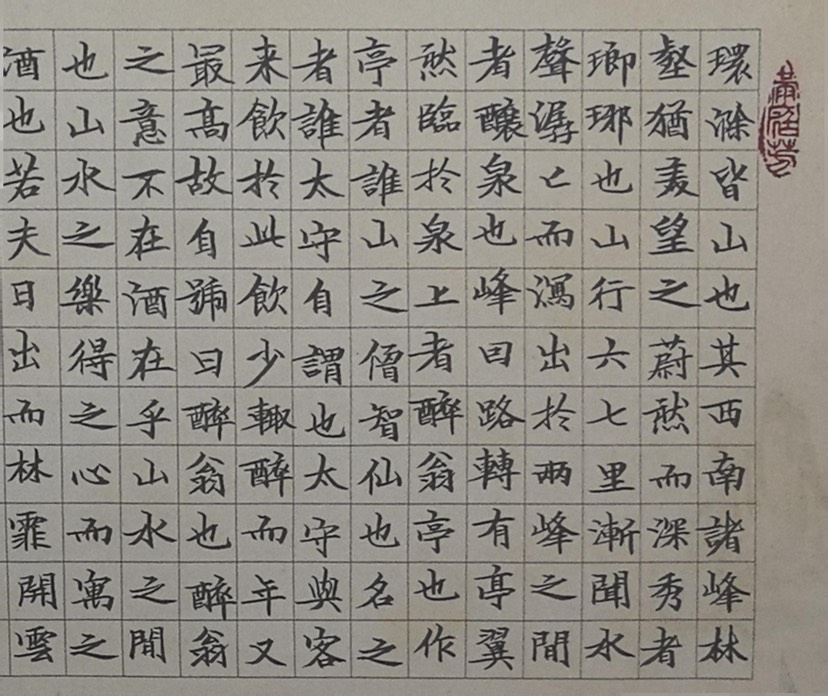 環滁皆山也其西南諸峰林
壑猶美望之蔚然而深秀者
瑯琊也山行六七里漸聞水
聲潺〻而瀉出於兩峰之間
者釀泉也峰回路轉有亭翼
然臨於泉上者醉翁亭也作
亭者誰山之僧智仙也名之
者誰太守自謂也太守與客
来飲於此飲少輙醉而年又
最高故自號曰醉翁也醉翁
之意不在酒在乎山水之間
也山水之樂得之心而寓之
酒也若夫日出而林霏開雲